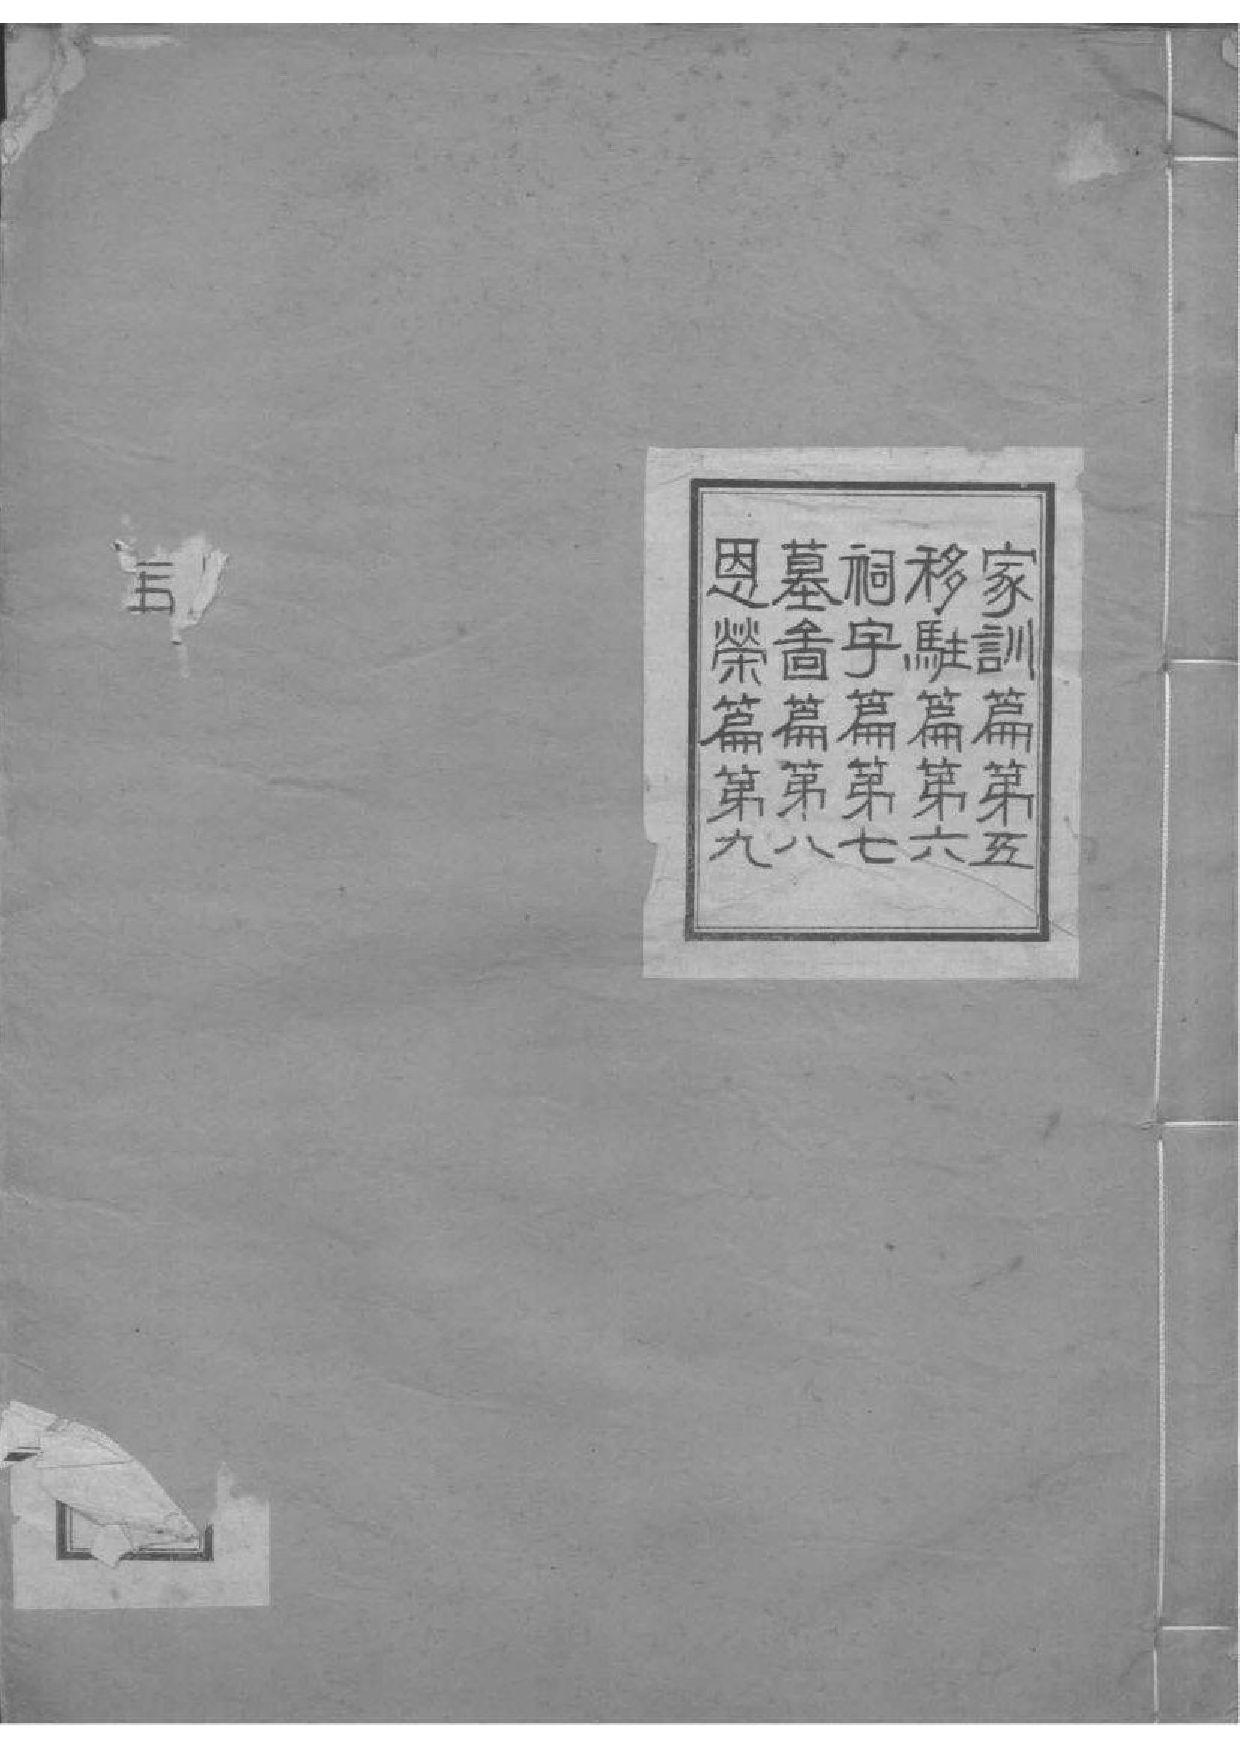 家訓篇第五
移駐篇第六
祠宇篇第七
墓啚篇第八
恩榮篇第九
五